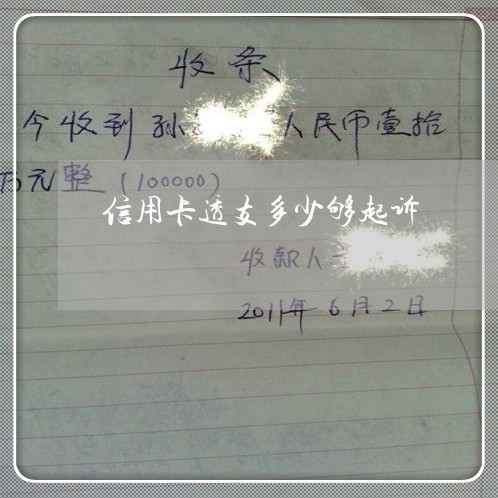 收条
今收到孙 人民币壹拾
万元整(100000)
信用卡透支多少够起诉
收款人
2011年6月2日